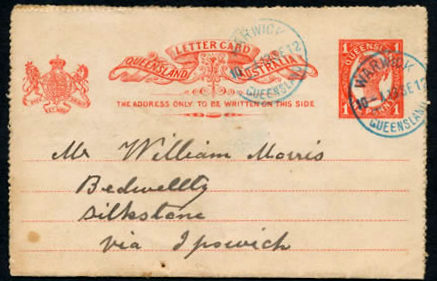 LETTER CARD
QUEENSLAND AUSTRALIA
THE ADDRESS ONLY TO BE WRITTEN ON THIS SIDE
QUEENSLAND
1 1
WARWICK
QUEENSLAND
WARWICK
QUEENSLAND
Mr William Morris
Bedwellty
Silkstone
via Ipswich